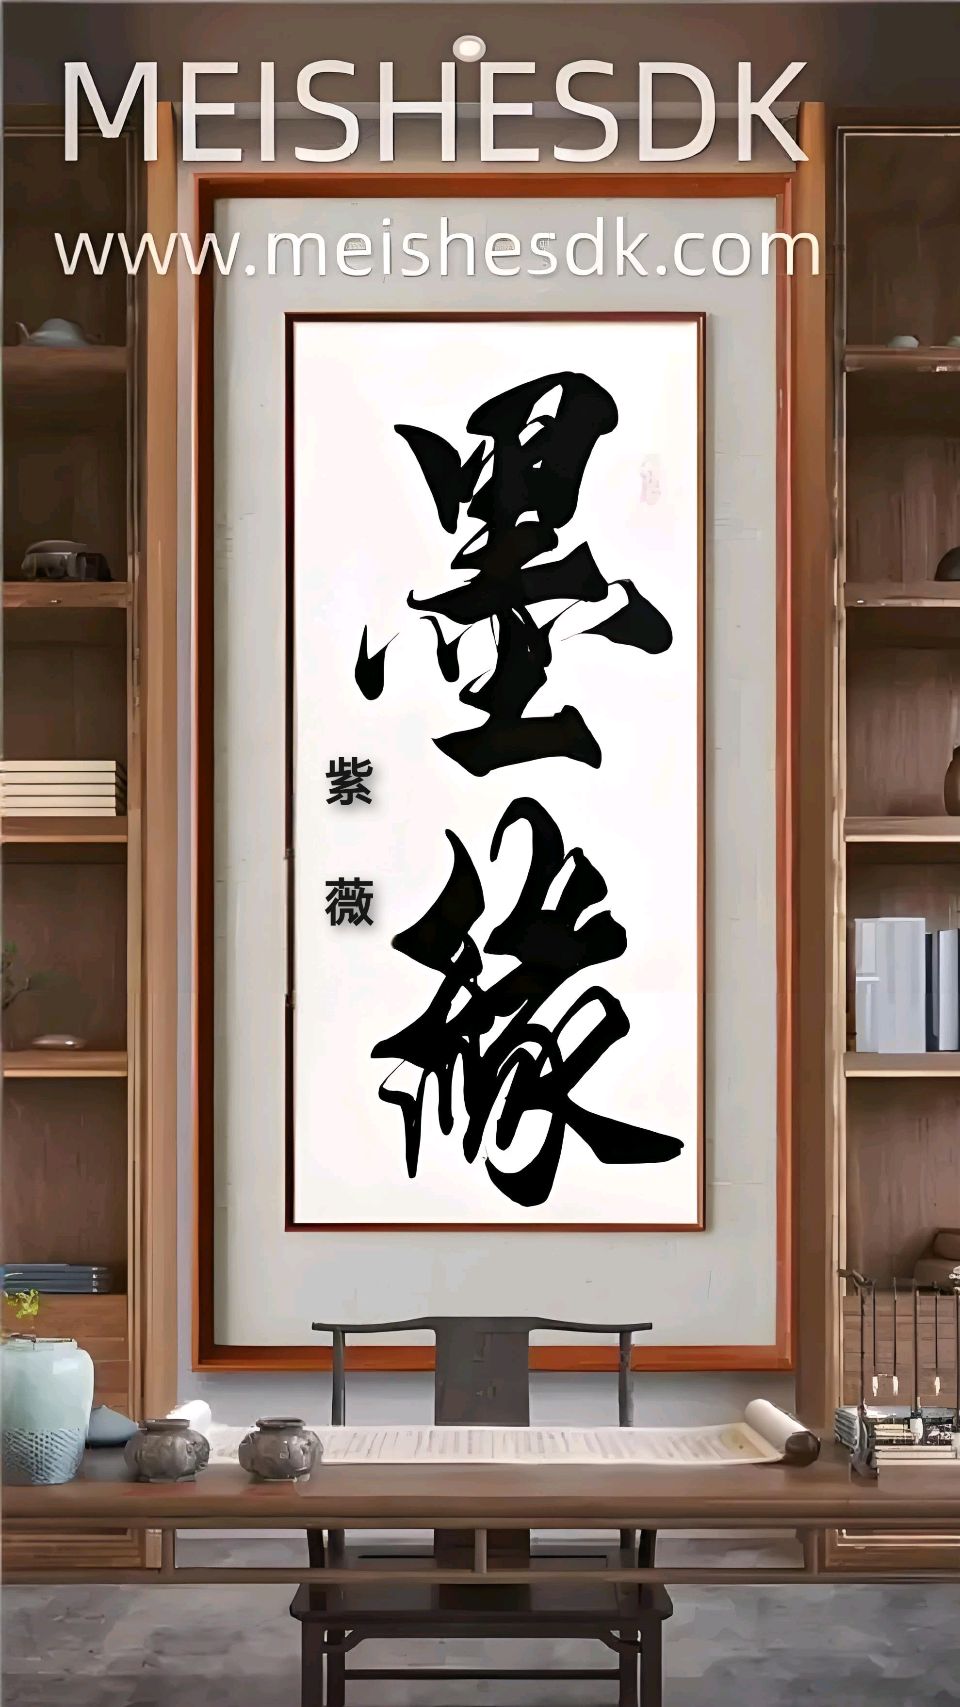 MEISHESDK
www.meishesdk.com
墨缘
紫薇